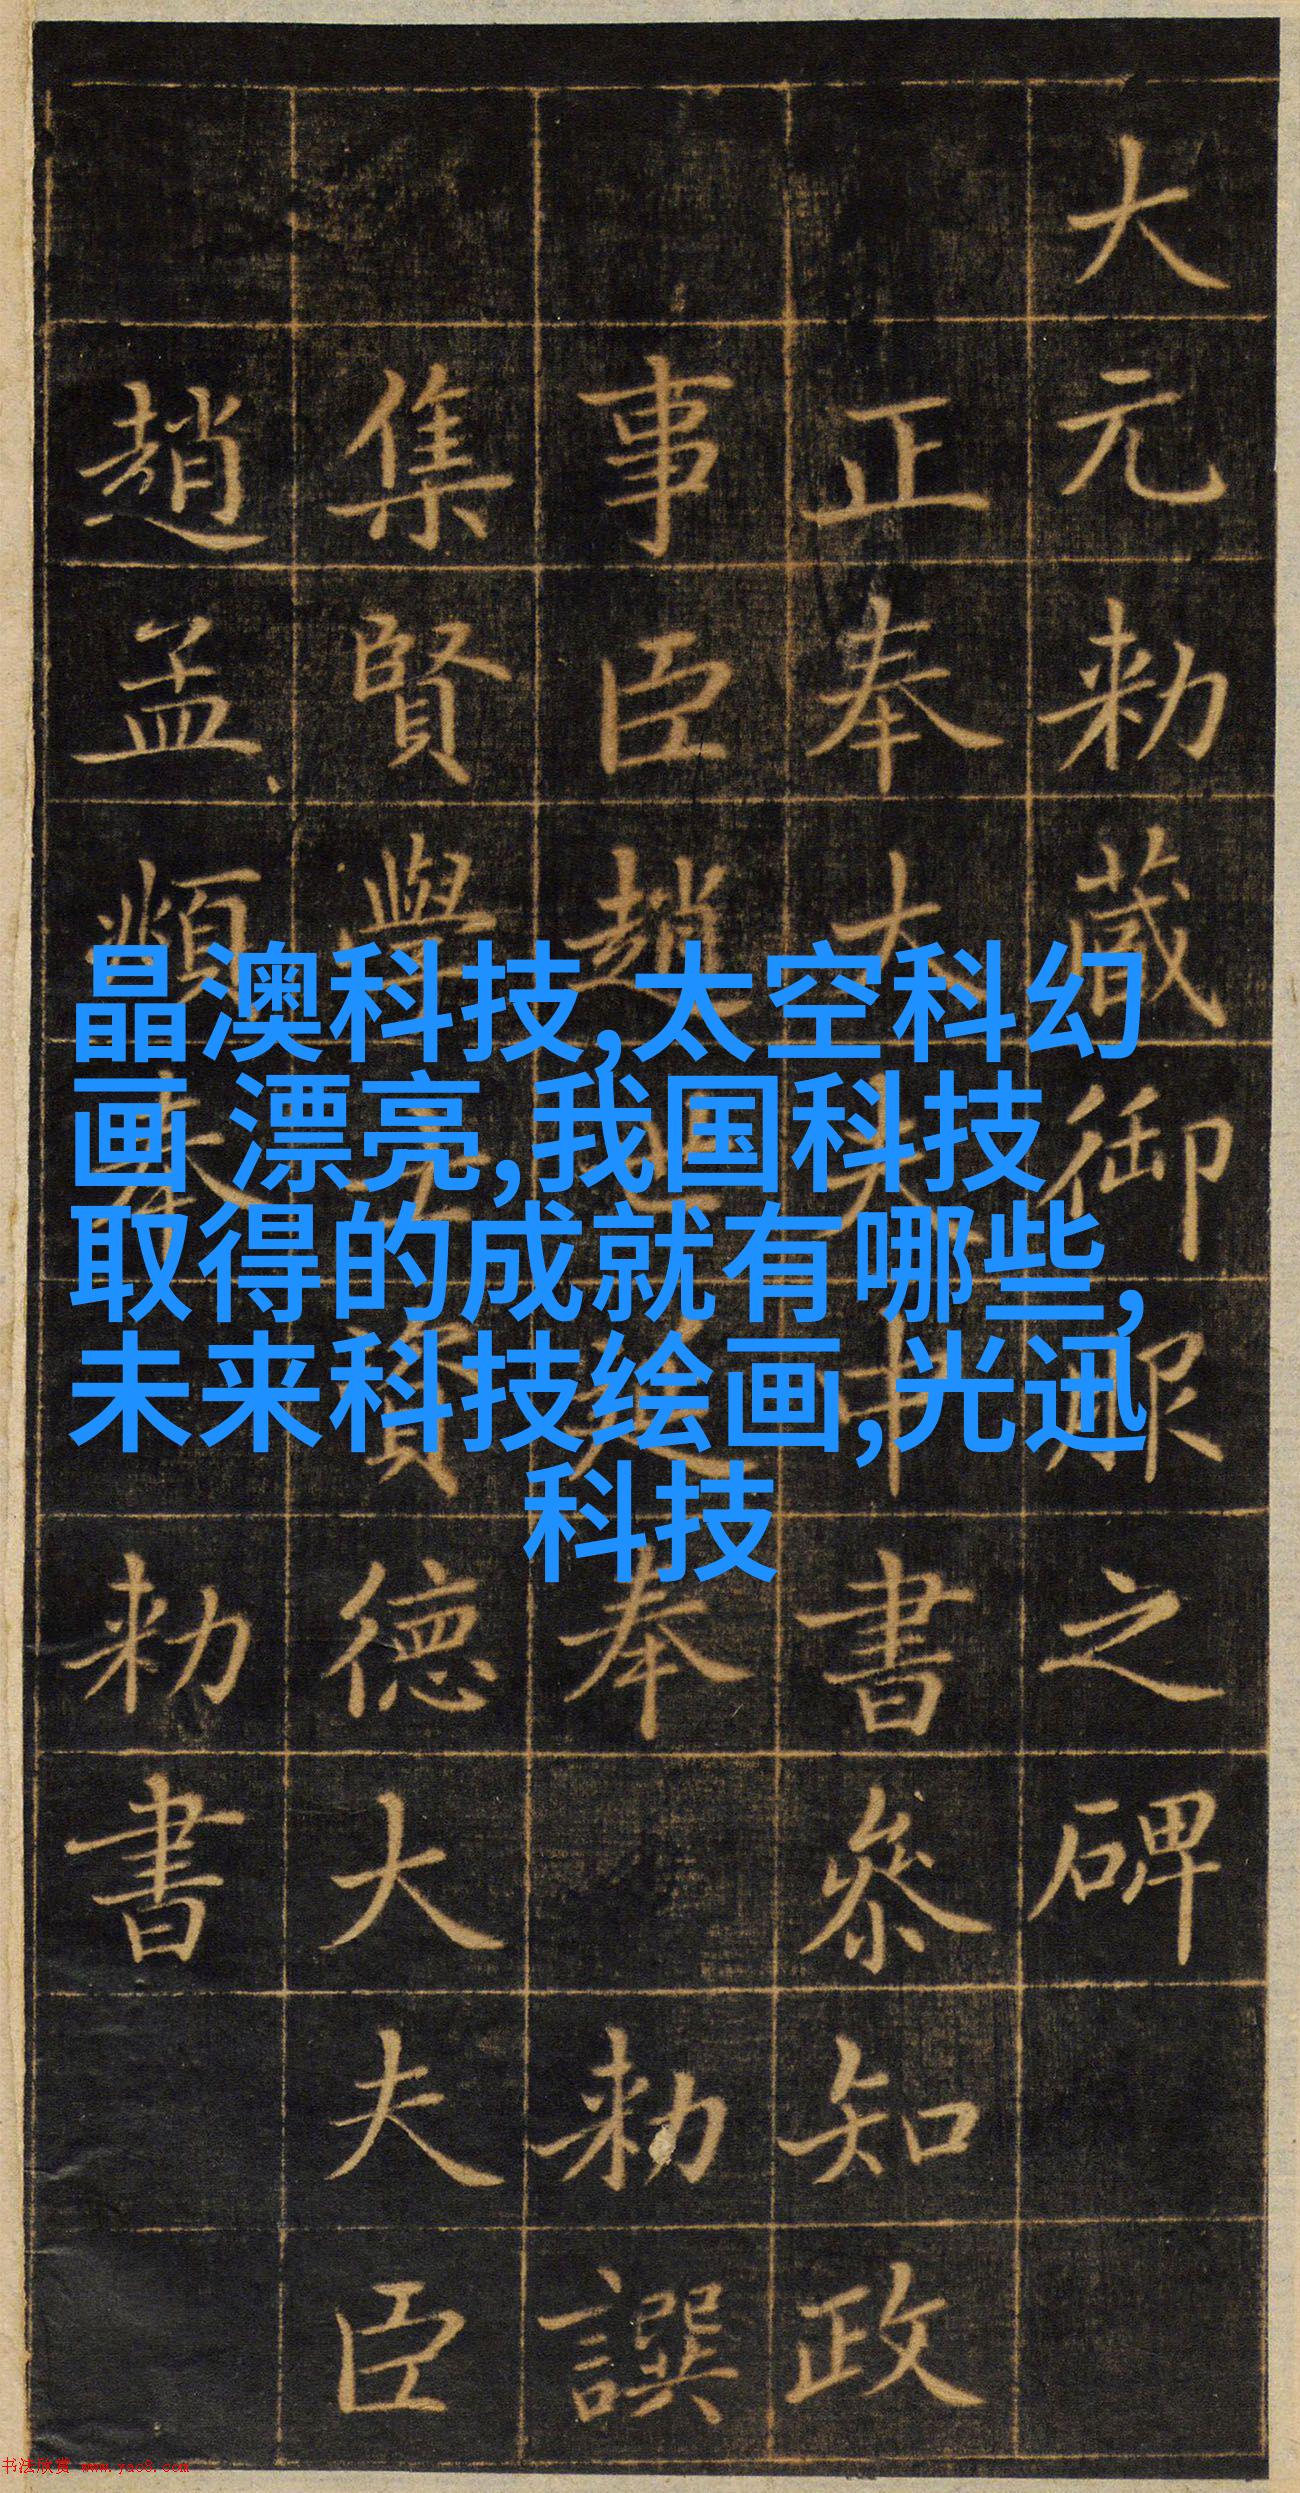 大元勅藏御服之碑
正奉大夫中書參知政
事臣趙世延奉 勅譔
集賢學士資德大夫臣
趙孟頫奉 勅書
晶澳科技,太空科幻
画 漂亮,我国科技
取得的成就有哪些,
未来科技绘画,光迅
科技
书法欣赏 www.yac8.com